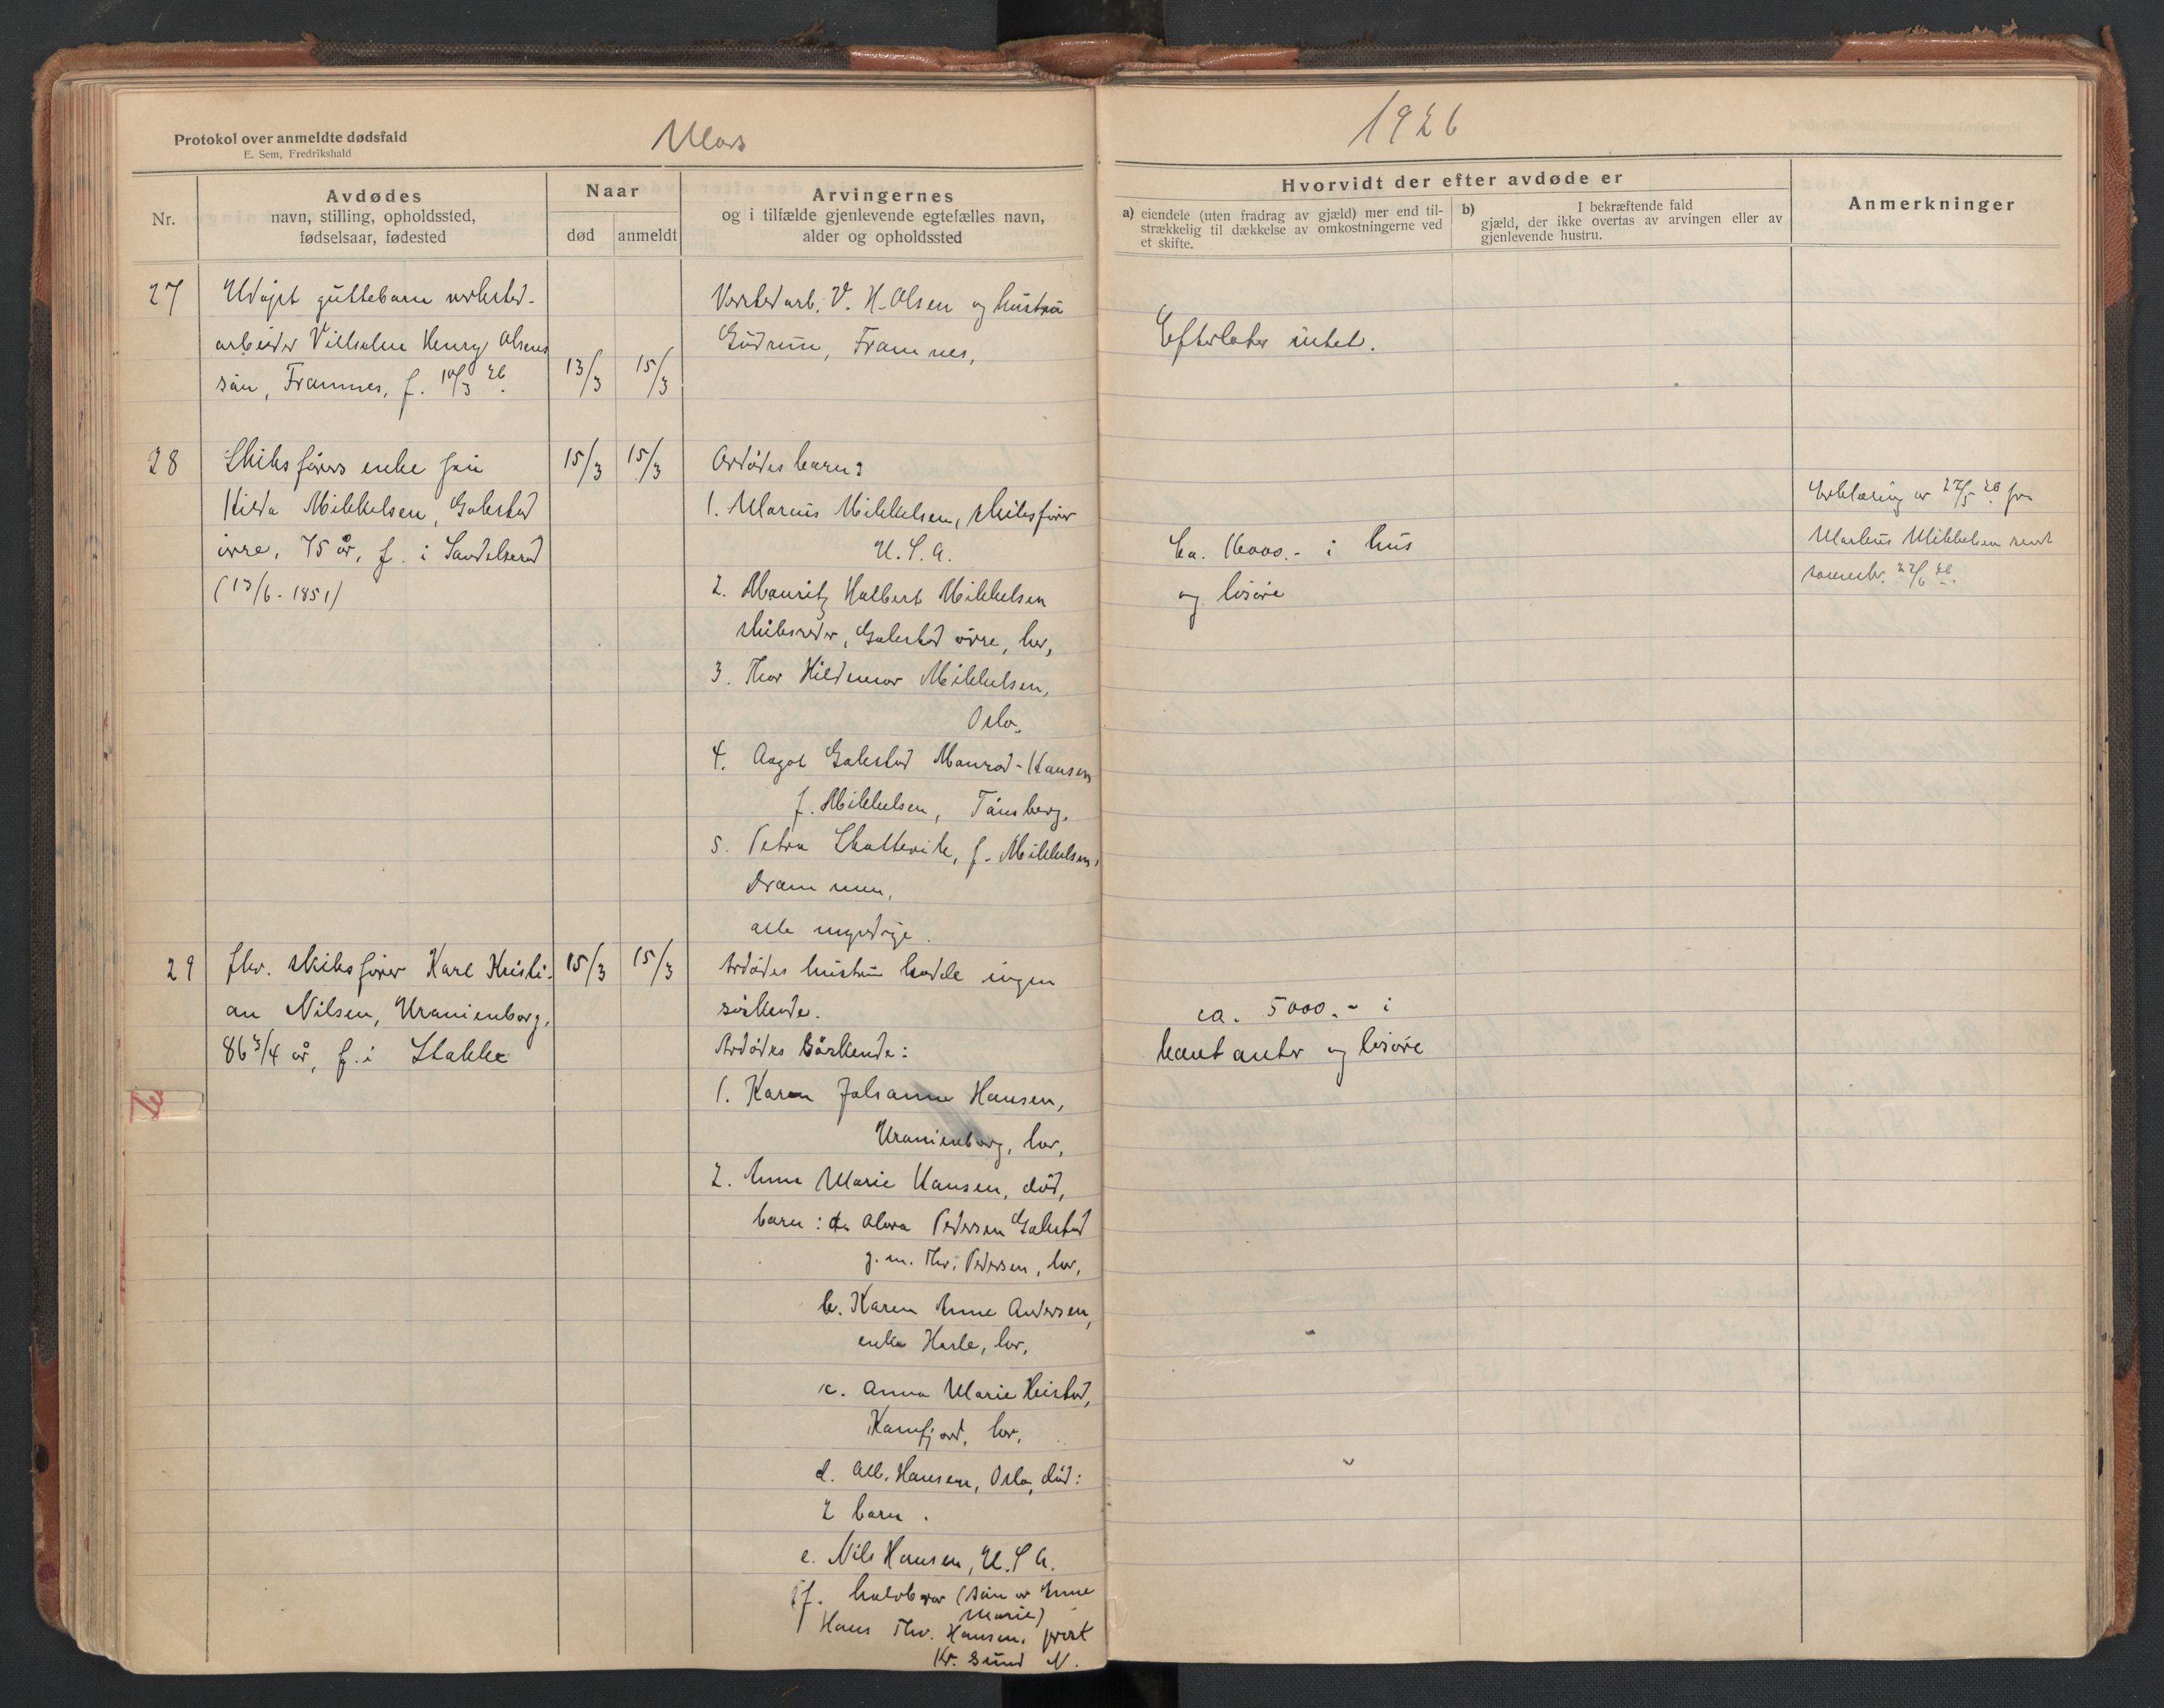 Protokol over anmeldte dødsfald
E. Sem, Fredrikshald
Mars
1926
Nr.
Avdødes
navn, stilling, opholdssted,
fødselsaar, fødested
Naar
død
anmeldt
Arvingernes
og i tilfælde gjenlevende egtefælles navn,
alder og opholdssted
Hvorvidt der efter avdøde er
a) eiendele (uten fradrag av gjæld) mer end til-
strækkelig til dækkelse av omkostningerne ved
et skifte.
b) I bekræftende fald
gjæld, der ikke overtas av arvingen eller av
gjenlevende hustru.
Anmerkninger
27
Udøpt guttebarn verksted-
arbeider Vilhelm Henry Olsens
søn, Framnes, f. 10/3 26.
13/3
15/3
V. H. Olsen og hustru
Gudrun, Framnes,
Efterlater intet.
28
Skibsførers enke fru
Hilda Mikkelsen, Gokstad
øvre, 75 år, f. i Sandeherred
(13/6-1851)
15/3
15/3
Avdødes barn:
1. Marius Mikkelsen, skibsfører
U.S.A.
2. Mauritz Halbert Mikkelsen
skibsreder, Gokstad øvre, her,
3. Thor Hildemar Mikkelsen,
Oslo.
4. Aagot Gokstad Monrad-Hansen
f. Mikkelsen, Tønsberg.
5. Petra Skattevik, f. Mikkelsen,
Drammen,
alle myndige.
Ca. 16000.- i hus
og løsøre
Erklæring av 22/5 26 fra
Mikkelsen sendt
22/6 26.
29
fhv. skibsfører Karl Kristi-
an Nilsen, Uranienborg,
86 3/4 år, f. i Stokke
15/3
15/3
Avdødes hustru hadde ingen
søskende.
Avdødes søskende:
1. Karen Johanne Hansen,
Uranienborg, her,
2. Anne Marie Hansen, død,
barn: a. Alora Pedersen Gokstad
g. m. Thv. Pedersen, her,
b. Karen Anne Andersen,
enke Hasle, her,
c. Anna Marie Heistad,
Kamfjord, her,
d. Alb. Hansen, Oslo, død:
2 barn.
e. Nils Hansen, U.S.A.
f. halvbror (søn av Anne
Marie)
Hans Thv. Hansen, prest
Kr. sund N.
ca. 5000.- i
kontanter og løsøre